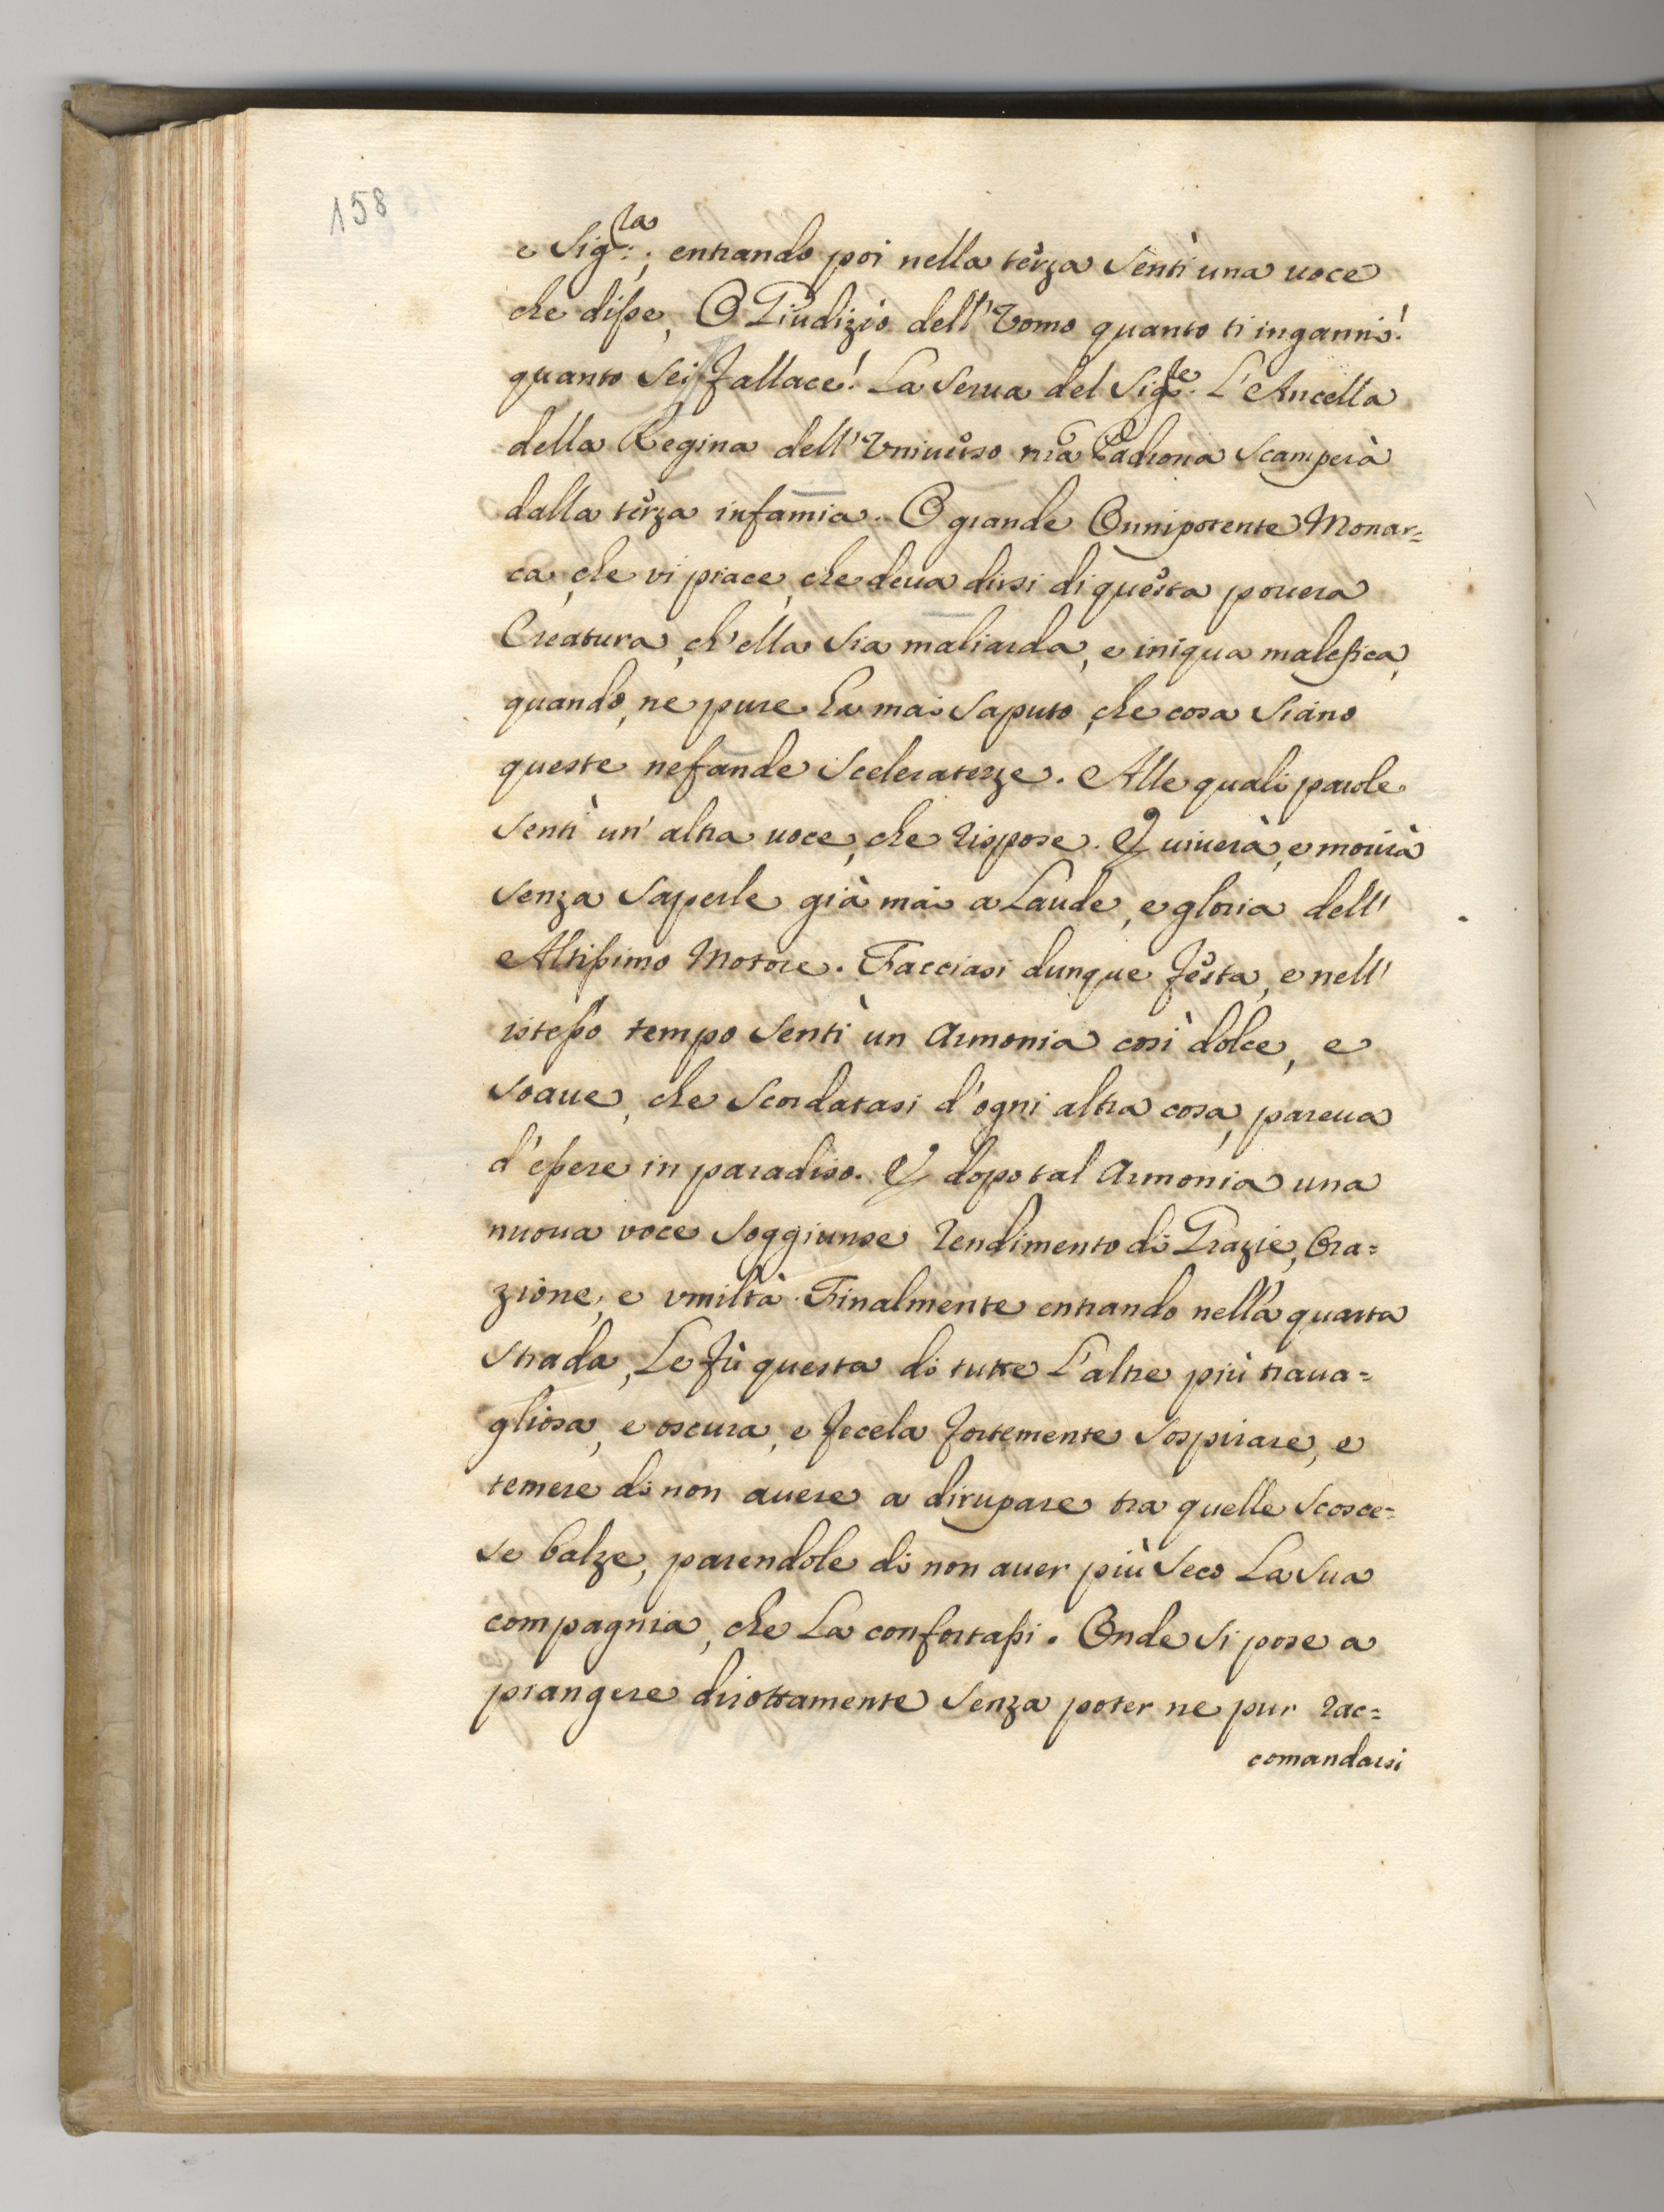 158
e Sig.ra; entrando poi nella terza Sentì una uoce
che disse, O Giudizio dell'Vomo quanto ti inganni!
quanto Sei fallace! La Serua del Sig.re L'Ancella
della Regina dell'Vniuerso nra Padrona Scamperà
dalla terza infamia. O grande Onnipotente Monar=
ca, che vi piace, che deua dirsi di questa pouera
Creatura, ch'ella Sia maliarda, e iniqua malefica,
quando, ne pure ha mai Saputo, che cosa Siano
queste nefande Sceleratezze. Alle quali parole
Sentì un'altra uoce, che rispose. E uiuerà, e morirà
Senza Saperle già mai a Laude, e gloria dell'
Altissimo Motore. Facciasi dunque festa, e nell'
istesso tempo Sentì un Armonia così dolce, e
Soaue, che Scordatasi d'ogni altra cosa, pareua
d'essere in paradiso. E dopo tal Armonia una
nuoua voce Soggiunse Rendimento di Grazie, Ora=
zione, e vmiltà. Finalmente entrando nella quarta
Strada, Le fù questa di tutte L'altre più traua=
gliosa, e oscura, e fecela fortemente Sospirare, e
temere di non auere a dirupare tra quelle Scosce=
Se balze, parendole di non auer più Seco La Sua
compagnia, che La confortassi. Onde Si pose a
piangere dirottamente Senza poter ne pur rac=
comandarsi